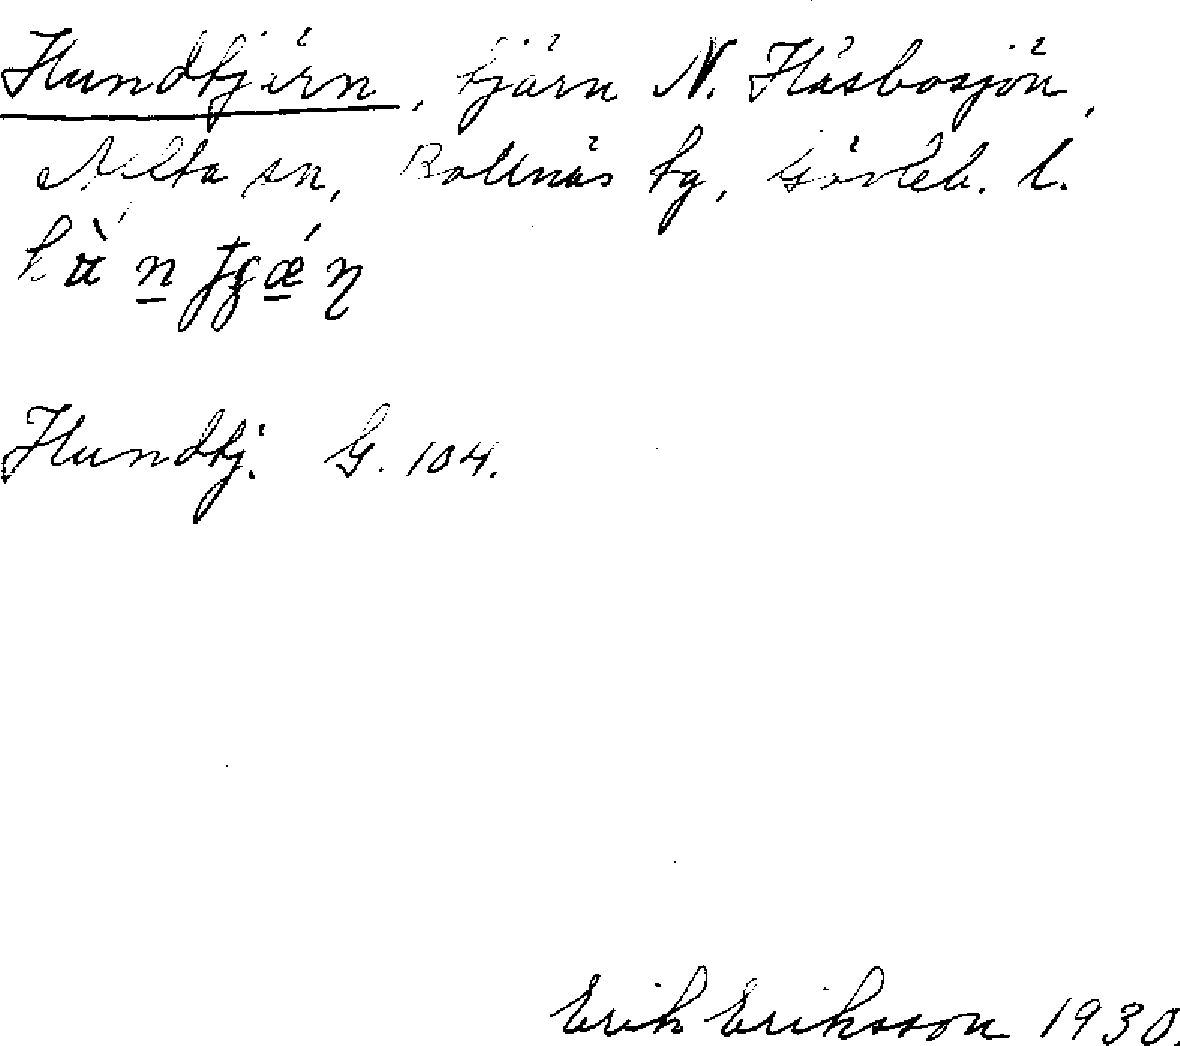 Hundtjärn, tjärn N. Håsbosjön,
Alfta sn, Bollnäs tg, Gävleb. l.
Hundtj. G. 104.
Erik Eriksson 1930.